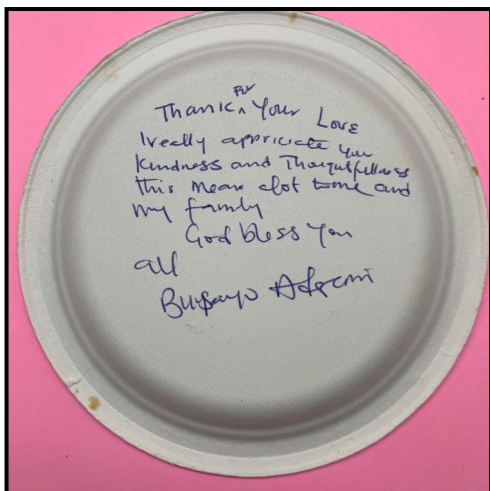 Thank for Your Love
I really appriciate you
Kindness and Thoughtfullness
this mean alot to me and
my family
God bless You
all
Busayo Aderemi